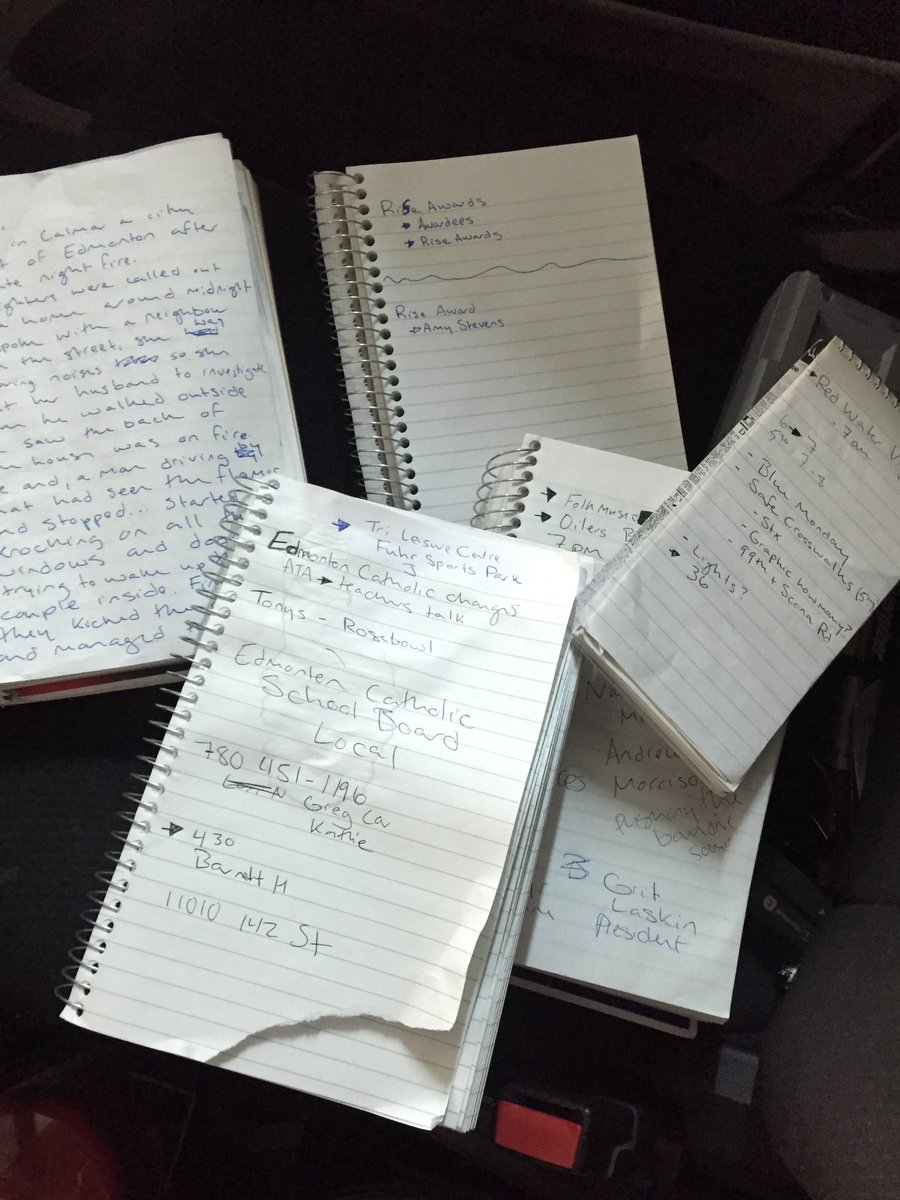 in Calmar a city
of Edmonton after
night fire.
were called out
home around midnight
with a neighbour
the street, she was
noises so she
her husband to investigate
he walked outside
saw the back of
house was on fire.
and, a man driving by
had seen the flames
and stopped... started
knocking on all
windows and
trying to wake up
couple inside.
they kicked the
and managed
Rise Awards
Awardees
Rise Awards
Rise Award
Amy Stevens
Red
- 7am
7
7 - 8
- Blue Monday
Safe Crosswalks
- Stx
- Graphic how many?
- 99th + Scona Rd
- Lights?
36
Folk Music
Oilers
7pm
Andrew
Morrison
Grit
Laskin
President
Tri Leisure Centre
Fuhr Sports Park
Edmonton Catholic changes
ATA → teachers talk
Tonys - Rosebowl
Edmonton Catholic
School Board
Local
780 451-1196
Greg
Kathie
430
Barnett H
11010 142 St